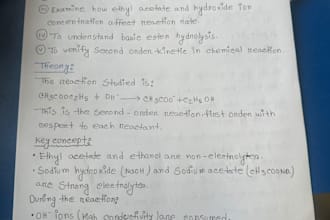 (iii) Examine how ethyl acetate and hydroxide ion
concentration affect reaction rate
(iv) To understand basic ester hydolysis.
(v) To verify Second order kinetic in chemical reaction.
Theory:
The reaction studied is:
CH3COOC2H5 + OH⁻ → CH3COO⁻ + C2H5OH
This is the Second-order reaction first order with
respect to each reactant.
Key concept:
• Ethyl acetate and ethanol are non-electrolytes.
• Sodium hydroxide (NaOH) and Sodium acetate (CH3COONa)
are strong electrolytes.
During the reaction:
• OH⁻ ions (High conductivity) are consumed.